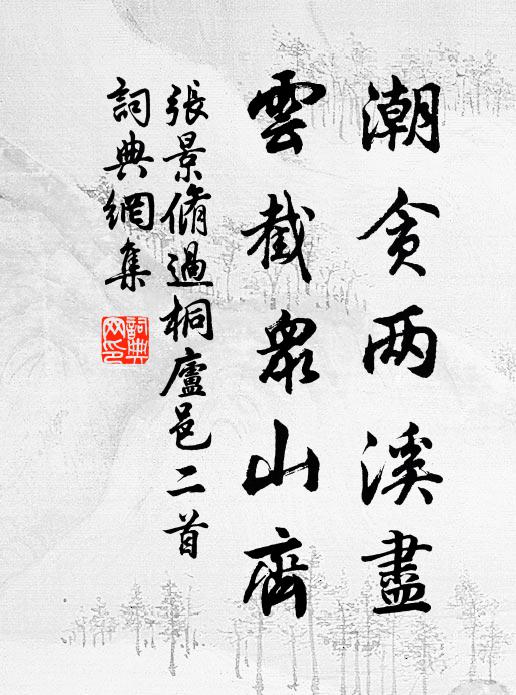 潮貪两溪盡
雲截衆山齊
張景脩過桐廬邑二首
詞典網集
詞典网印